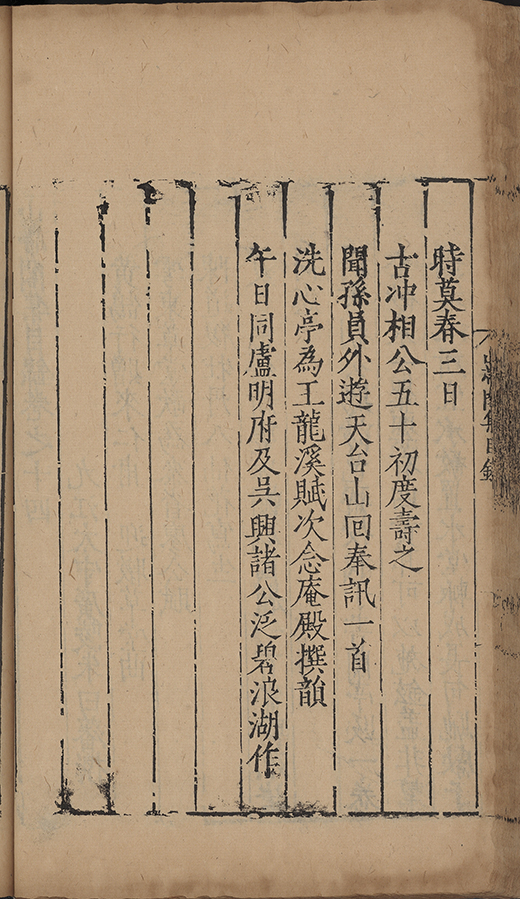 時莫春三日
古冲相公五十初度壽之
聞孫員外遊天台山回奉訊一首
洗心亭為王龍溪賦次念庵殿撰韻
午日同盧明府及吳興諸公泛碧浪湖作